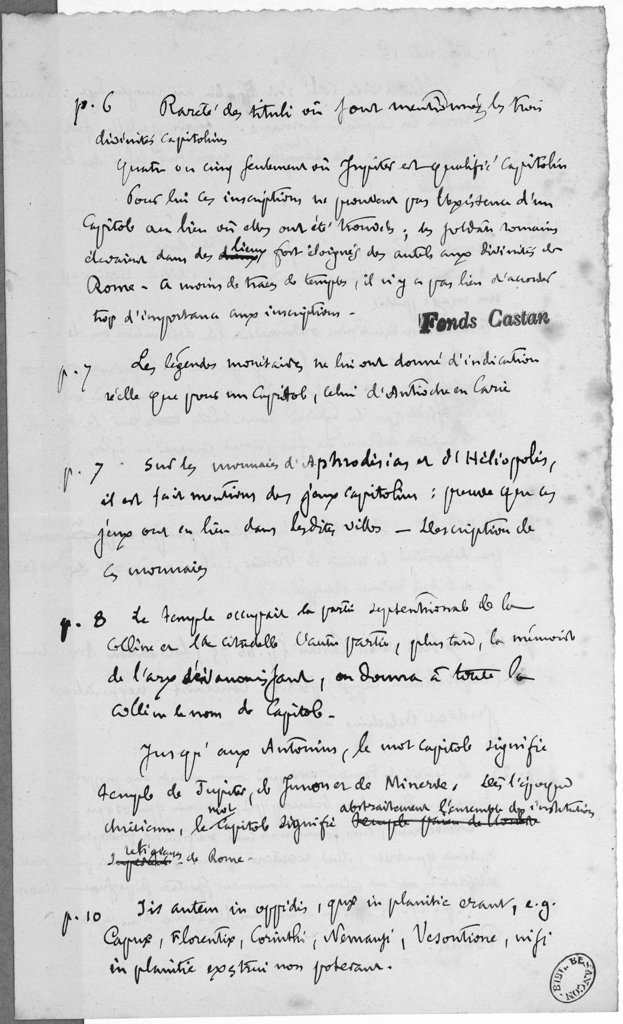 p. 6 Rareté des tituli où sont mentionnés les trois
divinités capitolins
Quatre ou cinq seulement où Jupiter est qualifié Capitolin
Pour lui ces inscriptions ne prouvent pas l'existence d'un
Capitole au lieu où elles ont été trouvées ; des soldats romains
devaient dans des lieux fort éloignés des autels aux divinités de
Rome - A moins de traces de temples, il n'y a pas lieu d'accorder
trop d'importance aux inscriptions -
Fonds Castan
p. 7 Les légendes monétaires ne lui ont donné d'indication
réelle que pour un Capitole, celui d'Antioche en Carie
p. 7 Sur les monnaies d'Aphrodisias et d'Héliopolis,
il est fait mention des jeux capitolins : preuve que ces
jeux ont eu lieu dans lesdites villes — Description de
ces monnaies
p. 8 Le temple occupait la partie septentrionale de la
colline et la citadelle l'autre partie, plus tard, la mémoire
de l'arx s'évanouissant, on donna à toute la
colline le nom de Capitole -
Jusqu'aux Antonins, le mot capitole signifie
temple de Jupiter, de Junon et de Minerve. Dès l'époque
chrétienne, le mot Capitole signifie abstraitement l'ensemble des institutions
religieuses de Rome -
p. 10 Iis autem in oppidis, quæ in planitie erant, e.g.
Capuæ, Florentiæ, Corinthi, Nemausi, Vesontione, nisi
in planitie exstrui non poterant.
BIBL. BESANÇON